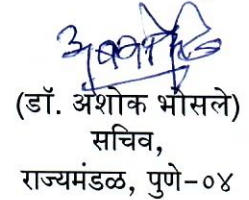 (डॉ. अशोक भोसले)
सचिव,
राज्यमंडळ, पुणे-०४